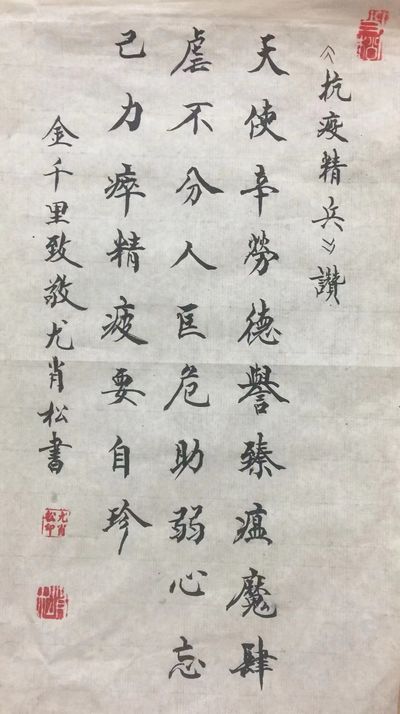 《抗疫精兵》讚
天使辛勞德譽臻瘟魔肆
虐不分人匡危助弱心忘
己力瘁精疲要自珍
金千里致敬尤肖松書
尤肖松印